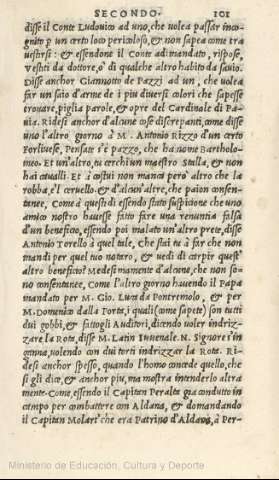 SECONDO. 101
disse il Conte Ludovico ad uno, che volea passar inco-
gnito p un certo loco pericoloso, & non sapea come tra
vestirsi: & essendone il Conte adimandato, rispose,
Vestiti da dottore, ò di qualche altro habito da savio.
Disse anchor Giannotto de Pazzi ad un, che volea
far un saio d'arme de i piu diversi colori che sapesse
trovare, piglia parole, & opre del Cardinale di Pa-
via. Ridesi anchor d'alcune cose discrepanti, come disse
uno l'altro giorno à M. Antonio Rizzo d'un certo
Forlivese, Pensate s'è pazzo, che ha nome Bartholo-
meo. Et un'altro, tu cerchi un maestro Stalla, & non
hai cavalli. Et à costui non manca però altro che la
robba, e'l cervello. & d'alcun'altre, che paion consen-
tanee, Come à questi di essendo stato suspitione che uno
amico nostro havesse fatto fare una renuntia falsa
d'un beneficio, essendo poi malato un'altro prete, disse
Antonio Torello à quel tale, Che stai tu à far che non
mandi per quel tuo notaro, & vedi di carpir quest'
altro beneficio? Medesimamente d'alcune, che non so-
no consentanee, Come l'altro giorno havendo il Papa
mandato per M. Gio. Luca da Pontremolo, & per
M. Domenico dalla Porta, i quali (come sapete) son tutti
dui gobbi, & fattogli Auditori, dicendo voler indriz-
zare la Rota, disse M. Latin Iuvenale. N. Signore s'in
ganna, volendo con dui torti indrizzar la Rota. Ri-
desi anchor spesso, quando l'homo concede quello, che
si gli dice, & anchor piu, ma mostra intenderlo altra
mente. Come, essendo il Capiten Peralta gia condutto in
campo per combattere con Aldana, & domandando
il Capiten Molart che era Patrino d'Aldana, à Per-
Ministerio de Educación, Cultura y Deporte